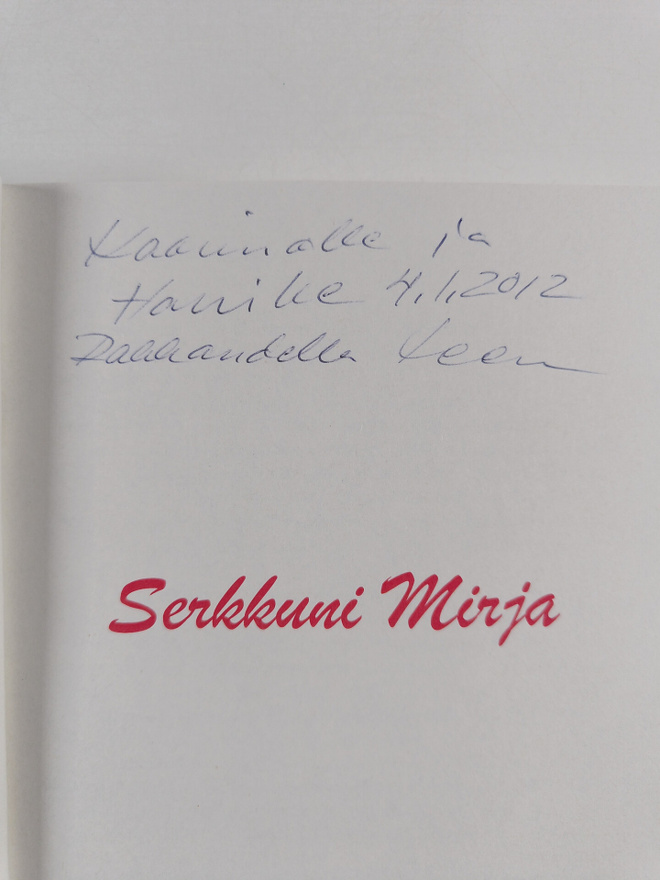 Kaarinalle ja
Harrille 4.1.2012
Rakkaudella
Serkkuni Mirja